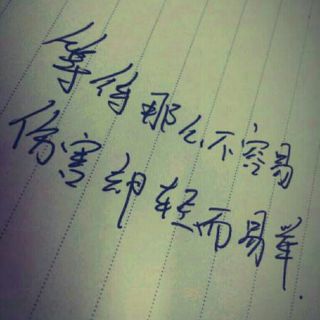 等待那么不容易
伤害却轻而易举.